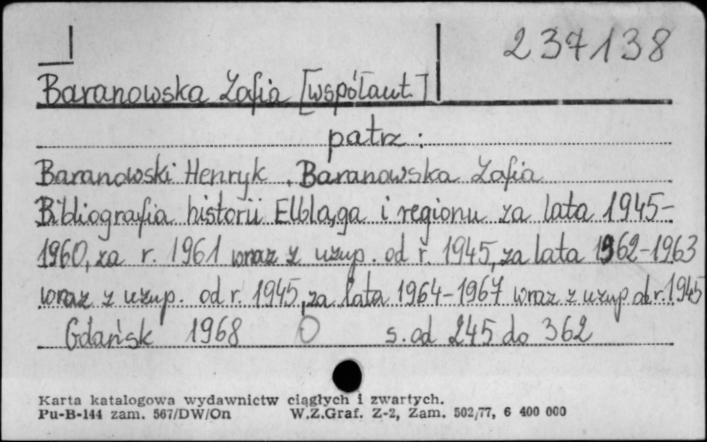 237138
Baranowska Zofia [współaut.]
patrz:
Baranowski Henryk, Baranowska Zofia
Bibliografia historii Elbląga i regionu za lata 1945-
1960, za r. 1961 wraz z uzup. od r. 1945, za lata 1962-1963
wraz z uzup. od r. 1945, za lata 1964-1967 wraz z uzup od r. 1945
Gdańsk 1968 s. od 245 do 362
Karta katalogowa wydawnictw ciągłych i zwartych.
Pu-B-144 zam. 567/DW/On W.Z.Graf. Z-2, Zam. 502/77, 6 400 000